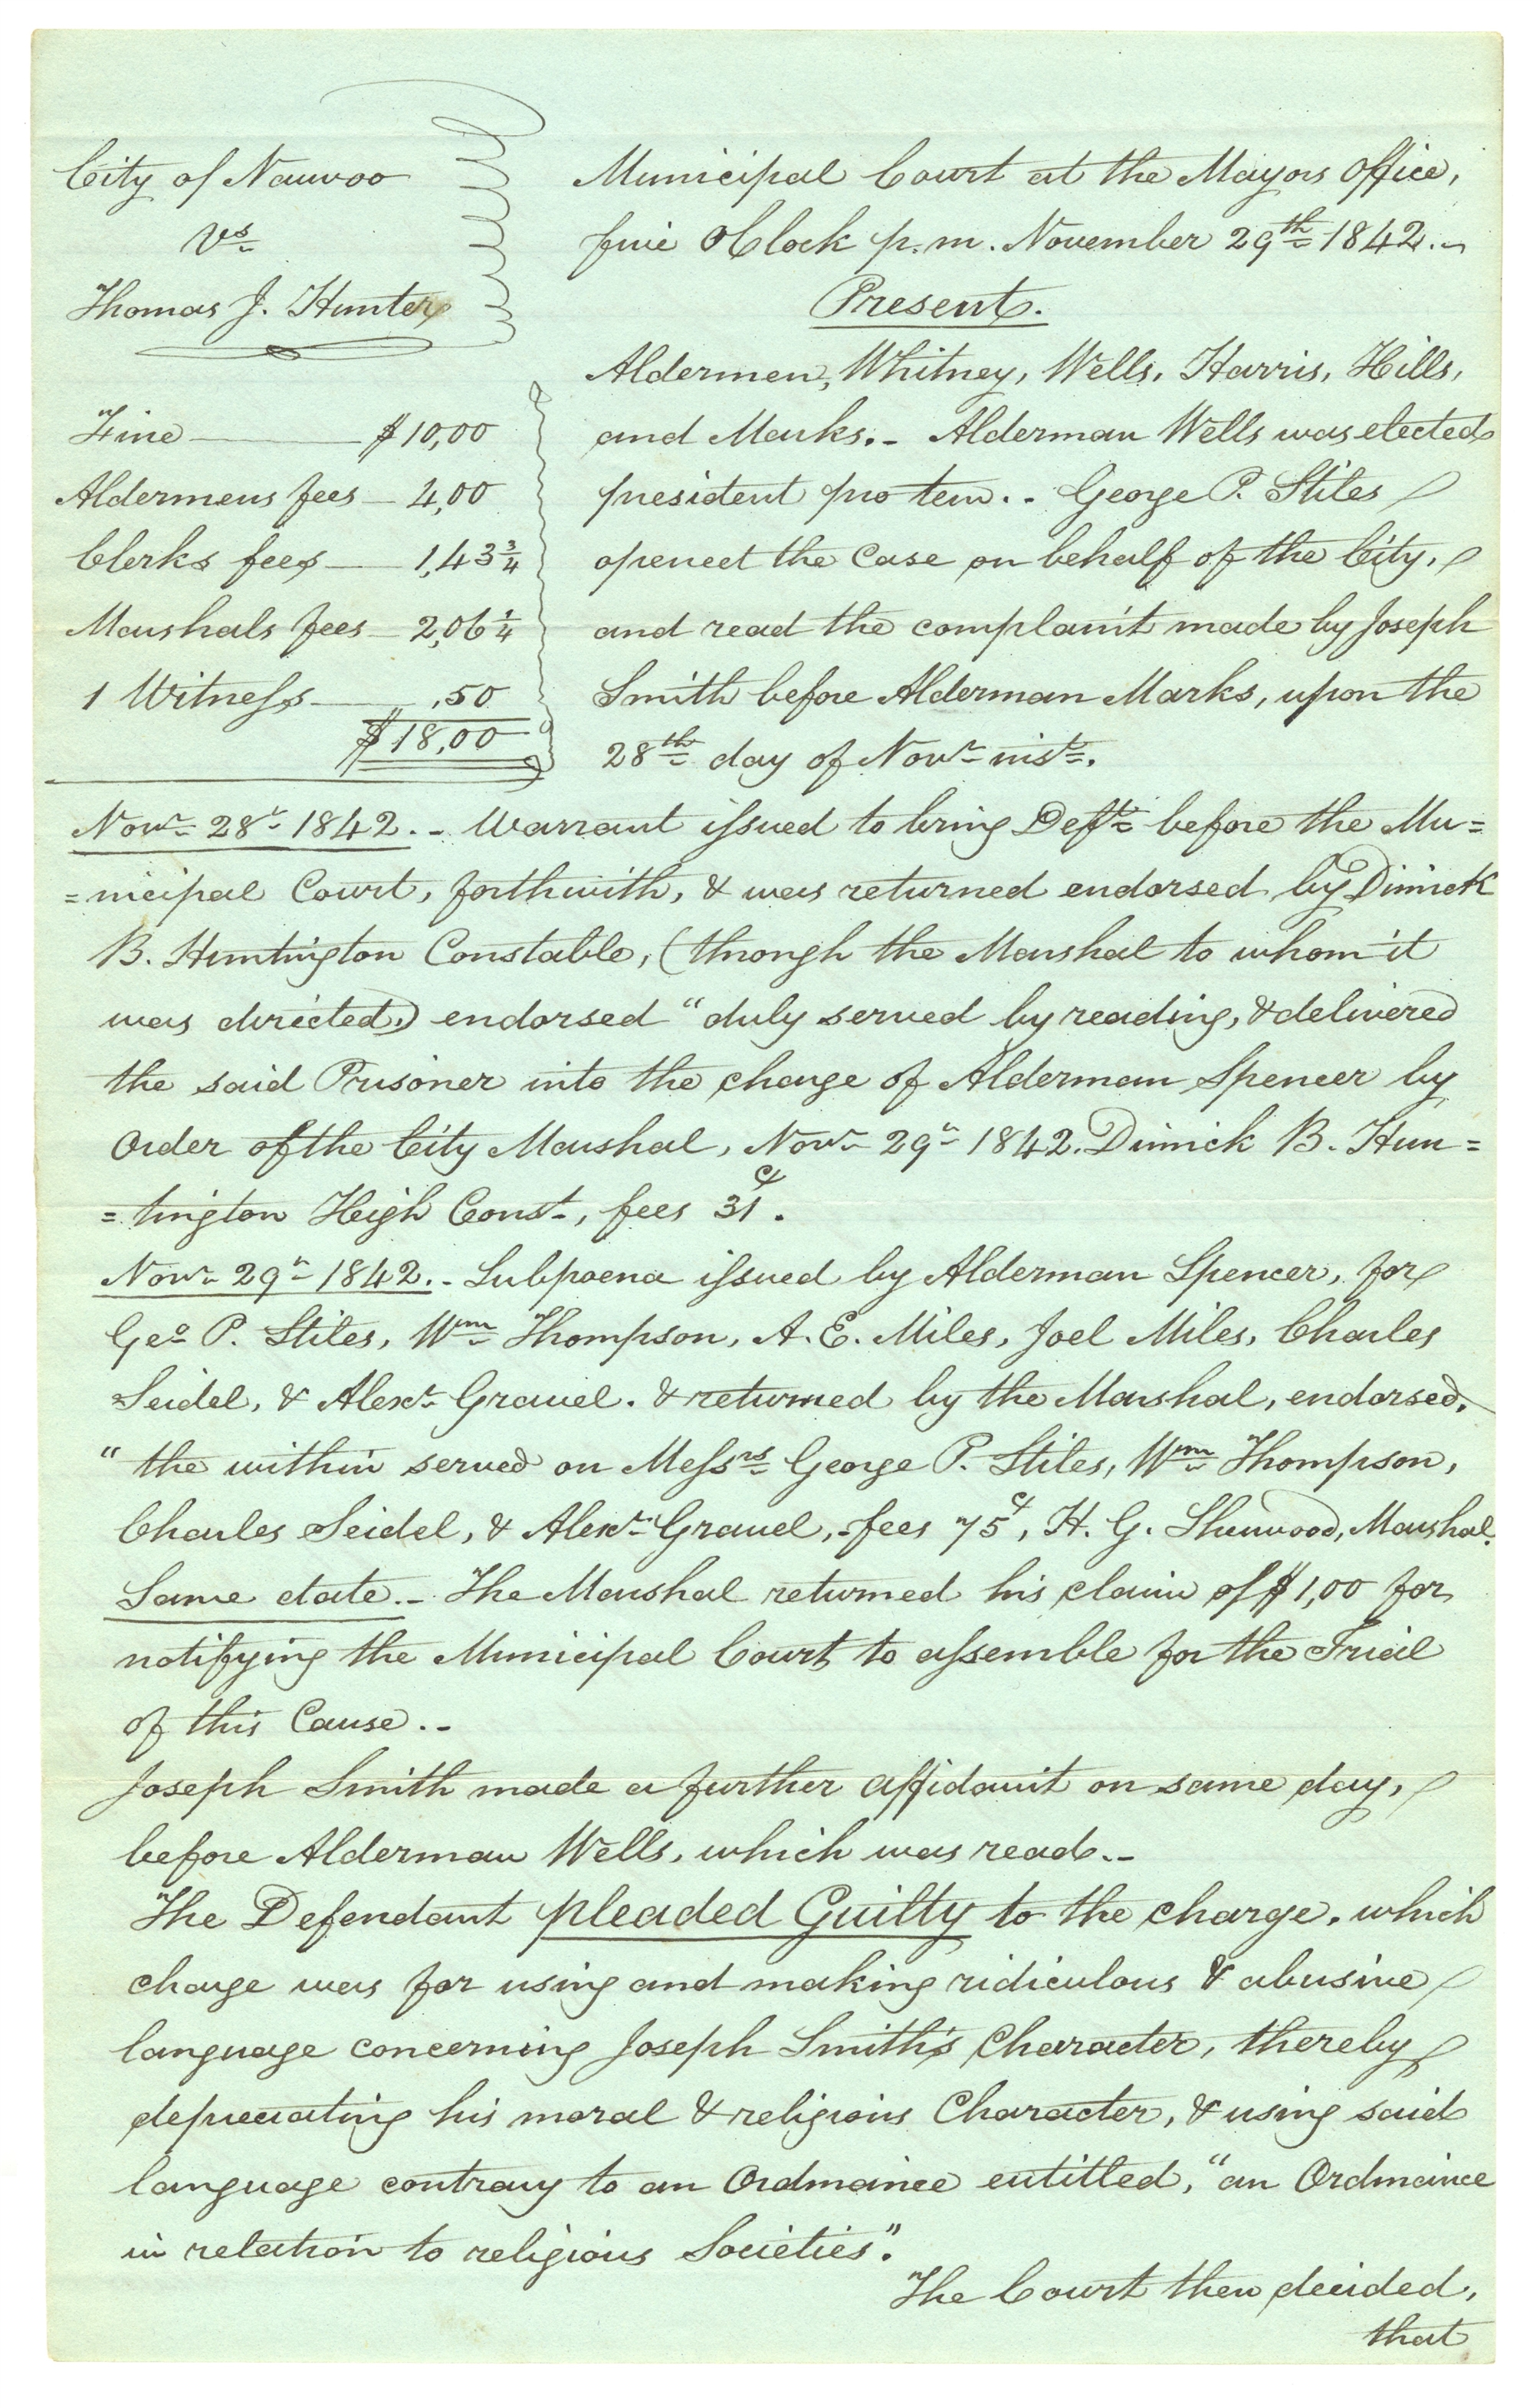 City of Nauvoo
Vs
Thomas J. Hunter
Fine $10,00
Aldermens fees 4,00
Clerks fees 1,43 3/4
Marshals fees 2,06 1/4
1 Witness ,50
$18,00
Municipal Court at the Mayors Office,
five OClock p.m. November 29th 1842.
Present.
Aldermen, Whitney, Wells, Harris, Hills,
and Marks. - Alderman Wells was elected
president pro tem. - George P. Stiles
opened the Case on behalf of the City,
and read the complaint made by Joseph
Smith before Alderman Marks, upon the
28th day of Novr inst.
Novr 28th 1842. - Warrant issued to bring Deft before the Mu=
=nicipal Court, forthwith, & was returned endorsed by Dimick
B. Huntington Constable, (through the Marshal to whom it
was directed,) endorsed "duly served by reading, & delivered
the said Prisoner into the charge of Alderman Spencer by
Order of the City Marshal, Novr 29th 1842. Dimick B. Hun=
=tington High Const, fees 31c.
Novr 29th 1842. - Subpoena issued by Alderman Spencer, for
Geo P. Stiles, Wm Thompson, A. E. Miles, Joel Miles, Charles
Seidel, & Alexr Gravel. & returned by the Marshal, endorsed,
"the within served on Messrs George P. Stiles, Wm Thompson,
Charles Seidel, & Alexr Gravel, - fees 75c, H. G. Sherwood, Marshal.
Same date. - The Marshal returned his claim of $1,00 for
notifying the Municipal Court to assemble for the Trial
of this Cause. -
Joseph Smith made a further affidavit on same day,
before Alderman Wells, which was read. -
The Defendant pleaded Guilty to the charge. which
charge was for using and making ridiculous & abusive
language concerning Joseph Smith's Character, thereby
depreciating his moral & religious Character, & using said
language contrary to an Ordinance entitled, "an Ordinance
in relation to religious Societies".
The Court then decided,
that